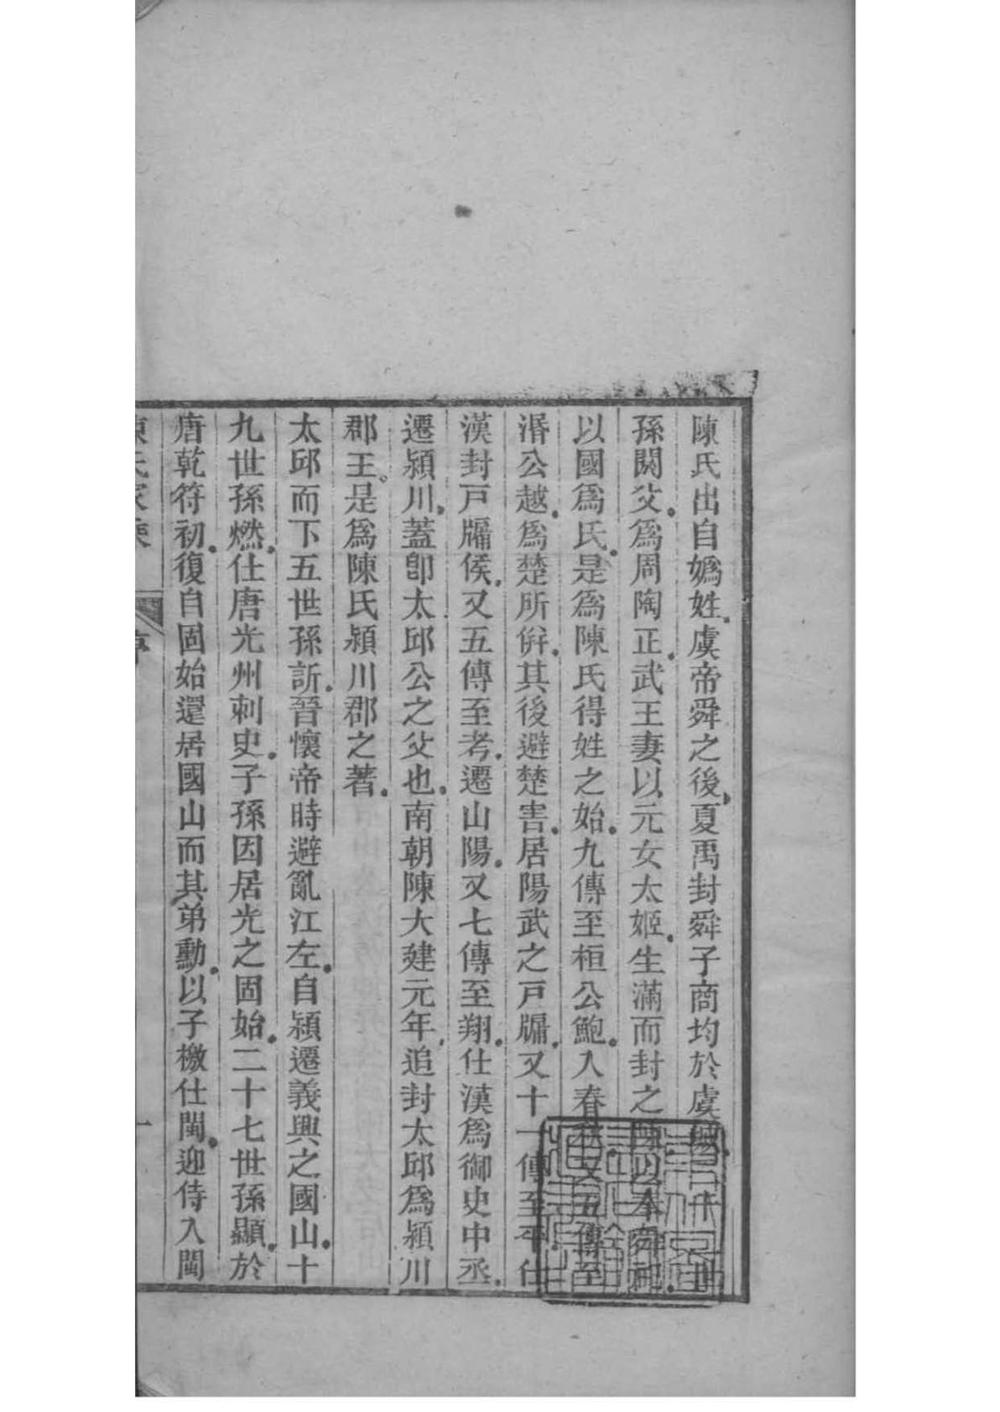 陳氏出自嬀姓虞帝舜之後夏禹封舜子商均於虞城三十二世
孫閼父爲周陶正武王妻以元女太姬生滿而封之陳以奉舜祀
以國爲氏是爲陳氏得姓之始九傳至桓公鮑入春秋又五傳至
湣公越爲楚所倂其後避楚害居陽武之戸牖又十一傳至平仕
漢封戸牖侯又五傳至考遷山陽又七傳至翔仕漢爲御史中丞
遷潁川蓋卽太邱公之父也南朝陳大建元年追封太邱爲潁川
郡王是爲陳氏潁川郡之著
太邱而下五世孫訢晉懷帝時避亂江左自潁遷義興之國山十
九世孫燃仕唐光州刺史子孫因居光之固始二十七世孫顯於
唐乾符初復自固始還居國山而其弟勳以子檄仕閩迎侍入閩
陳氏家乘 序 一